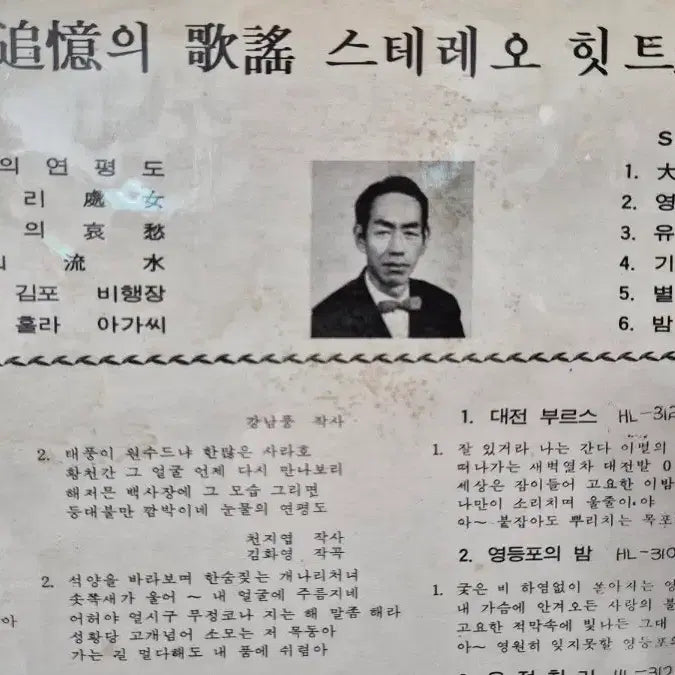 追憶의 歌謠 스테레오 힛트
의 연평도
리 處女
의 哀愁
流水
김포 비행장
홀라 아가씨
S
1. 大
2. 영
3. 유
4. 기
5. 별
6. 밤
강남풍 작사
2. 태풍이 원수드냐 한많은 사라호
황천간 그 얼굴 언제 다시 만나보리
해저믄 백사장에 그 모습 그리면
등대불만 깜박이네 눈물의 연평도
천지엽 작사
김화영 작곡
2. 석양을 바라보며 한숨짖는 개나리처녀
솟쪽새가 울어 ~ 내 얼굴에 주름지네
어허야 얼시구 무정코나 지는 해 말좀 해라
성황당 고개넘어 소모는 저 목동아
가는 길 멀다해도 내 품에 쉬렴아
아
1. 대전 부르스 HL-312
1. 잘 있거라 나는 간다 이별의
떠나가는 새벽열차 대전발 0
세상은 잠이들어 고요한 이밤
나만이 소리치며 울줄이야
아~ 붙잡아도 뿌리치는 목포
2. 영등포의 밤 HL-310
1. 궂은 비 하염없이 쏟아지는 영
내 가슴에 안겨오든 사랑의 불
고요한 적막속에 빛나든 그대
아~ 영원히 잊지못할 영등포의
HL-312